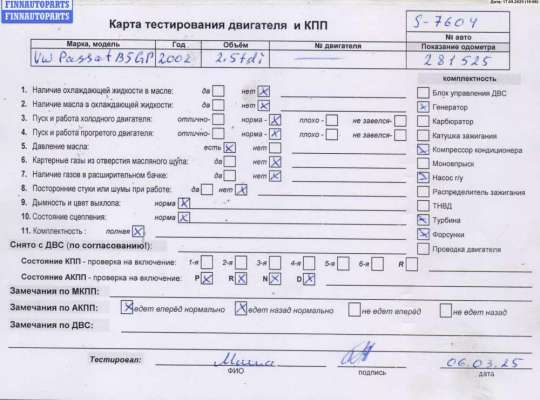 FINNAUTOPARTS
FINNAUTOPARTS
Дата: 17.09.2025
Карта тестирования двигателя и КПП
S-7604
№ авто
Марка, модель Год Объём № двигателя Показание одометра
VW Passat B5GP 2002 2.5tdi — 281525
комплектность
1. Наличие охлаждающей жидкости в масле: да нет X
Блок управления ДВС
2. Наличие масла в охлаждающей жидкости: да нет X
X Генератор
3. Пуск и работа холодного двигателя: отлично- норма - X плохо - не завелся-
Карбюратор
4. Пуск и работа прогретого двигателя: отлично- норма - X плохо - не завелся-
Катушка зажигания
5. Давление масла: есть X нет
X Компрессор кондиционера
6. Картерные газы из отверстия масляного щупа: да нет X
Моновпрыск
7. Наличие газов в расширительном бачке: да нет X
X Насос г/у
8. Посторонние стуки или шумы при работе: да нет X
Распределитель зажигания
9. Дымность и цвет выхлопа: норма X
ТНВД
10. Состояние сцепления: норма X
X Турбина
11. Комплектность : полная X
X Форсунки
Снято с ДВС (по согласованию!):
Проводка двигателя
Состояние КПП - проверка на включение: 1-я 2-я 3-я 4-я 5-я 6-я R
Состояние АКПП - проверка на включение: P X R X N X D X
Замечания по МКПП:
Замечания по АКПП: X едет вперёд нормально X едет назад нормально не едет вперёд не едет назад
Замечания по ДВС:
Тестировал: 06.03.25
ФИО подпись дата